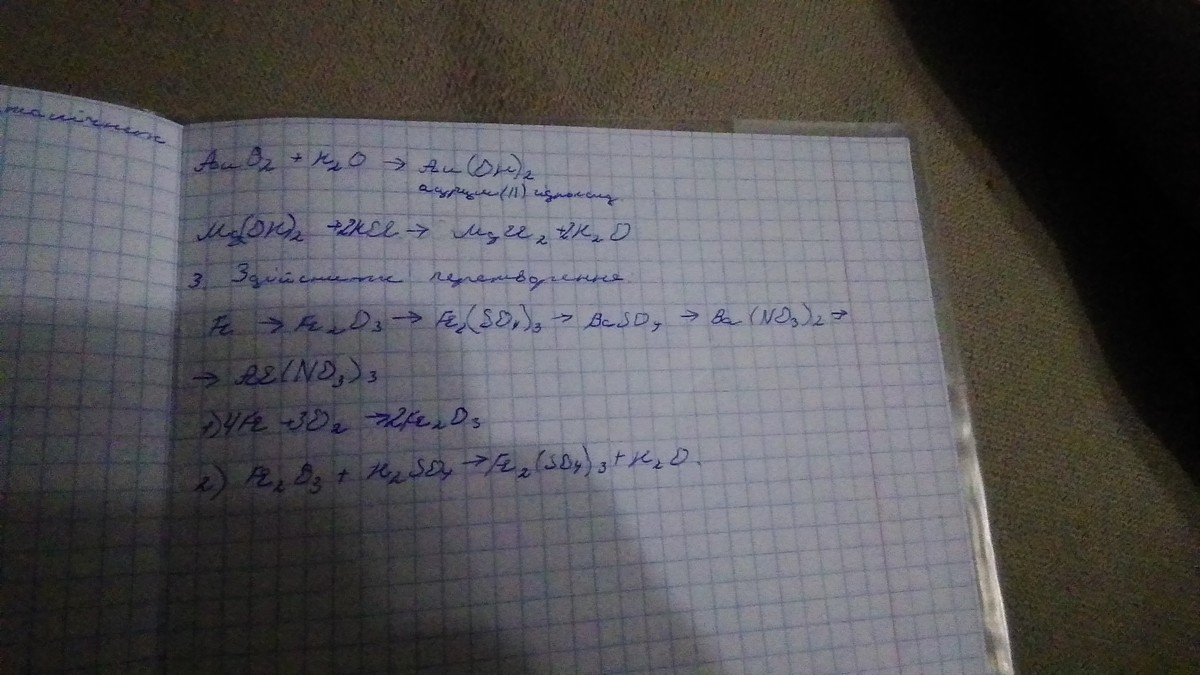 талічних
AuO₂ + H₂O → Au(OH)₂
аурум(II) гідроксид
Mg(OH)₂ +2HCl → MgCl₂ +2H₂O
3. Здійснити перетворення.
Fe → Fe₂O₃ → Fe₂(SO₄)₃ → BaSO₄ → Ba(NO₃)₂ →
→ Al(NO₃)₃
1) 4Fe +3O₂ → 2Fe₂O₃
2) Fe₂O₃ + H₂SO₄ → Fe₂(SO₄)₃ + H₂O.